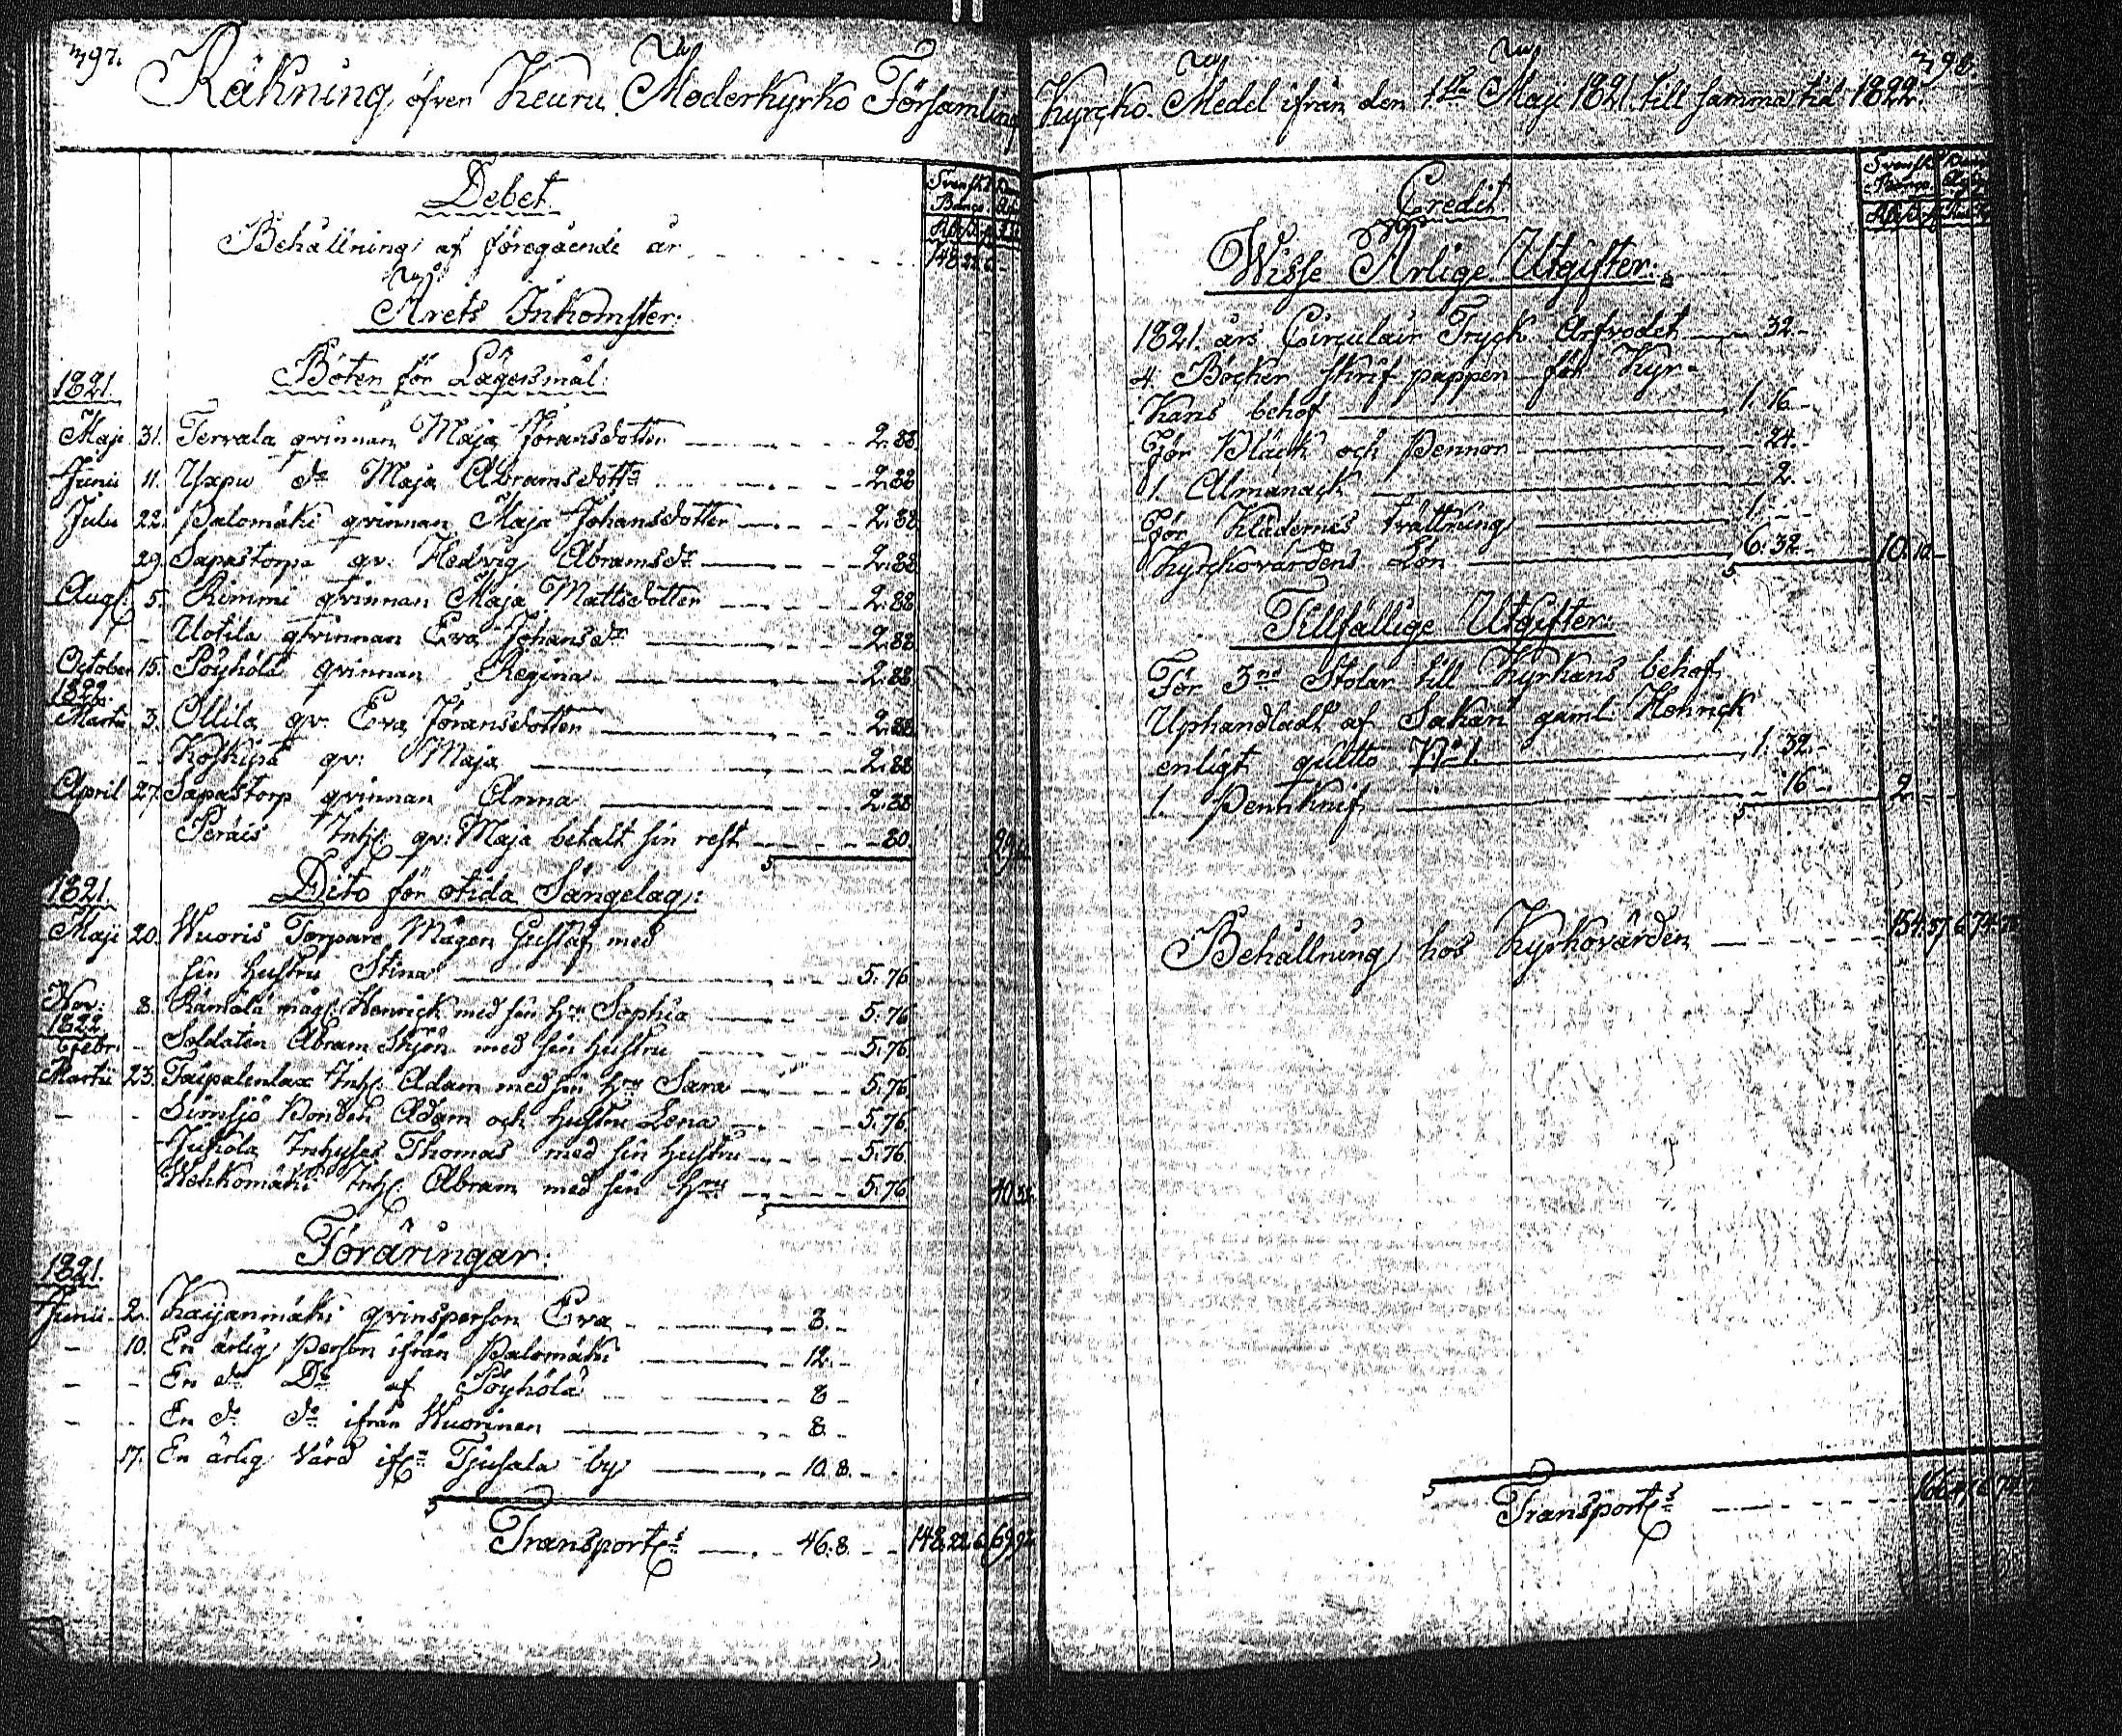 397.
Räkning öfver Keuru Moderkyrko Församlings
Debet
Svenskt
Banco
Behållning af föregående år 148.22.6.
Årets Inkomster:
Böten för Lägersmål:
1821.
Maji 31. Tervala qvinnan Maja Jöransdotter 2.88
Junii 11. Yxpu do Maja Abramsdottr 2.88
Julii 22. Palomäki qvinnan Maja Johansdotter 2.88
29. Sapastorp qv: Hedvig Abramsdr 2.88
Aug: 5. Rimmi qvinnan Maja Mattsdotter 2.88
- Uotila qvinnan Eva Johansdr 2.88
October 15. Pöyhölä qvinnan Regina 2.88
1822
Martii 3. Ollila qv: Eva Jöransdotter 2.88
- qv: Maja 2.88
April 27. Sapastorp qvinnan Anna 2.88
Inh: qv: Maja betalt sin rest 80.
Dito för otida Sängelag:
1821.
Maji 20. Wuoris Torpare Mågen Gustaf med
sin hustru Stina 5.76
Nov: 8. måg: Henrick med sin hru Sophia 5.76
1822
Febr: - Soldaten Abram Skjön med sin hustru 5.76
Martii 23. Taipalenlax Inh: Adam med sin hru Sara 5.76
- - Simsjö Bonden Adam och hustru Lena 5.76
Jukola Inhyses Thomas med sin hustru 5.76
Wehkomäki Inh: Abram med sin hru 5.76 40.32
Föräringar:
1821.
Junii 2. Kaijanmäki qvinsperson Eva 8.
- 10. En ärlig person ifrån Palomäki 12.
- - En do Do af Pöyhölä 8
- - En do do ifrån Wuorinen 8.
17. En ärlig Värd ifrn Tjusala by 10.8.
Transport 46.8. 148.22.6. 69.92
398.
Kyrcko Medel ifrån den 1sta Maji 1821 till samma tid 1822.
Credit
Svenskt
Banco
Wisse Årlige Utgifter:
1821. års Circulair Tryck Arfvodet 32.
4. Böcker skrif papper för Kyr-
kans behof 1. 16.
För Bläck och Pennor 24.
1. Almanack 2.
För Klädernes tvättning 1.
Kyrckovärdens Lön 6. 32. 10. 10.
Tillfällige Utgifter:
För 3ne Stolar till Kyrkans behof
Uphandladt af Sakari gaml: Henrick
enligt quitto No 1. 1. 32.
1. Pennknif 16 2
Behållning hos Kyrkovärden
Transport